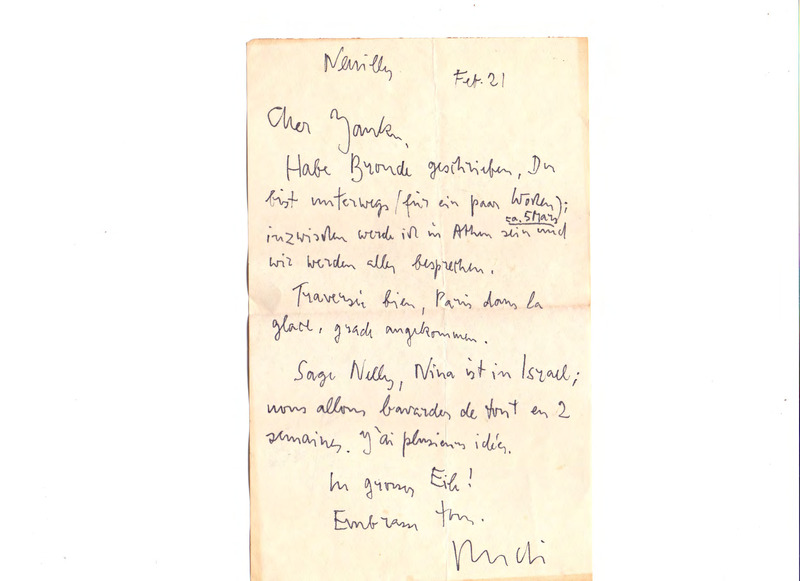 Neuilly
Fef. 21
Cher Yanku,
Habe Bronde geschrieben, Du
bist unterwegs (für ein paar Wochen);
ca. 5 März
inzwischen werde ich in Athen sein und
wir werden alles besprechen.
Traversée bien, Paris dans la
glace, grade angekommen.
Sage Nelly, Nina ist in Israel;
nous allons bavarder de tout en 2
semaines. J'ai plusieurs idées.
In grosser Eile!
Embrasse tous.